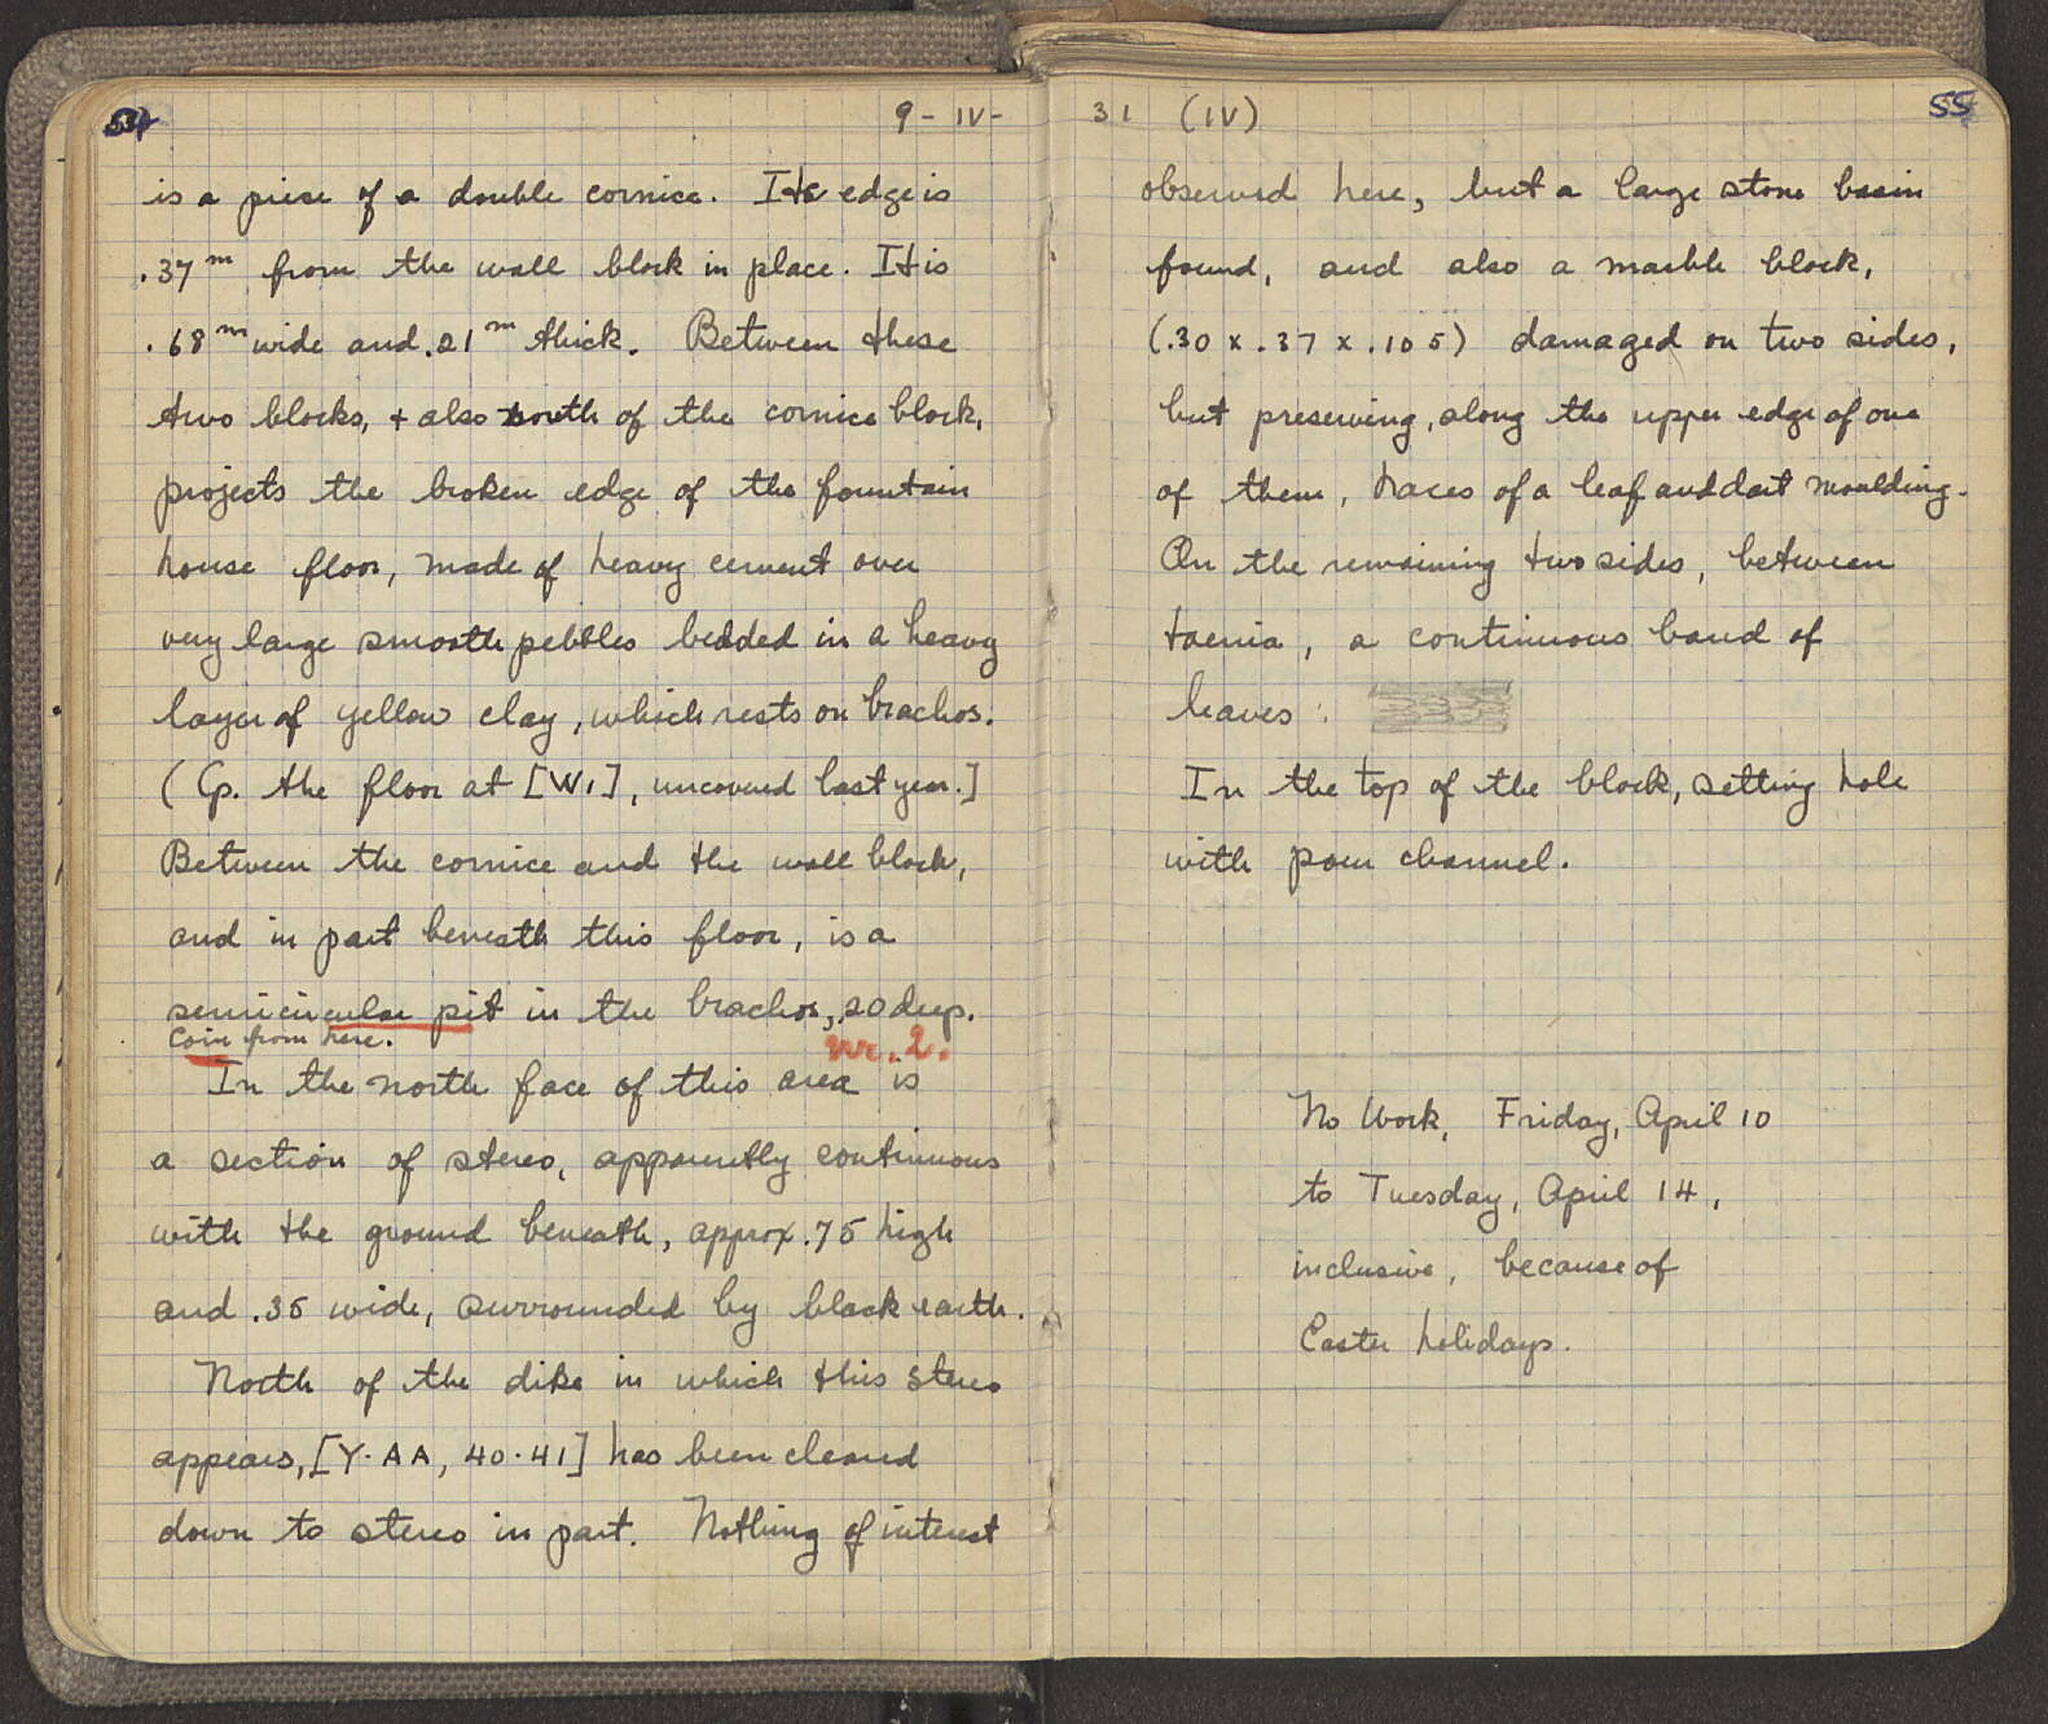 54
9 - IV -
is a piece of a double cornice. Its edge is
.37ᵐ from the wall block in place. It is
.68ᵐ wide and .21ᵐ thick. Between these
two blocks, + also south of the cornice block,
projects the broken edge of the fountain
house floor, made of heavy cement over
very large smooth pebbles bedded in a heavy
layer of yellow clay, which rests on brachos.
(Cp. the floor at [W1], uncovered last year.]
Between the cornice and the wall block,
and in part beneath this floor, is a
semicircular pit in the brachos, .20 deep.
Coin from here.
nr. 2.
In the north face of this area is
a section of stereo, apparently continuous
with the ground beneath, approx .75 high
and .35 wide, surrounded by black earth.
North of the dike in which this stereo
appears, [Y-AA, 40-41] has been cleared
down to stereo in part. Nothing of interest
31 (IV)
55
observed here, but a large stone basin
found, and also a marble block,
(.30 x .37 x .105) damaged on two sides,
but preserving, along the upper edge of one
of them, traces of a leaf and dart moulding.
On the remaining two sides, between
taenia, a continuous band of
leaves :
In the top of the block, setting hole
with pour channel.
No Work, Friday, April 10
to Tuesday, April 14,
inclusive, because of
Easter holidays.